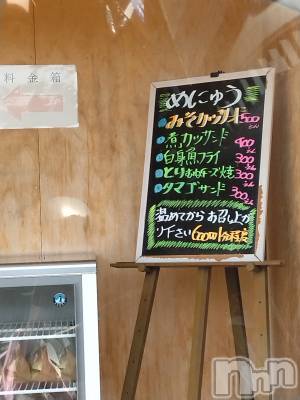 料金箱
めにゅう
みそカツサンド 500えん
煮カツサンド 400えん
白身魚フライ 300えん
とりむねチーズ焼 300えん
タマゴサンド 300えん
温めてから お召し上が
り下さい 600W 1分程度